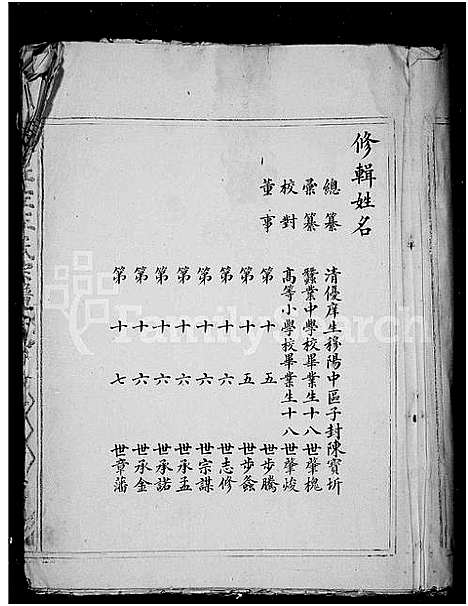 修輯姓名
總纂 清優庠生穆陽中區子封陳寶圻
彙纂 蠶業中學校畢業生十八世肇槐
校對 高等小學校畢業生十八世肇峻
董事 第十五世步騰
第十五世步鈖
第十六世志修
第十六世宗謀
第十六世承孟
第十六世承諾
第十六世承金
第十七世章藩
FamilySearch